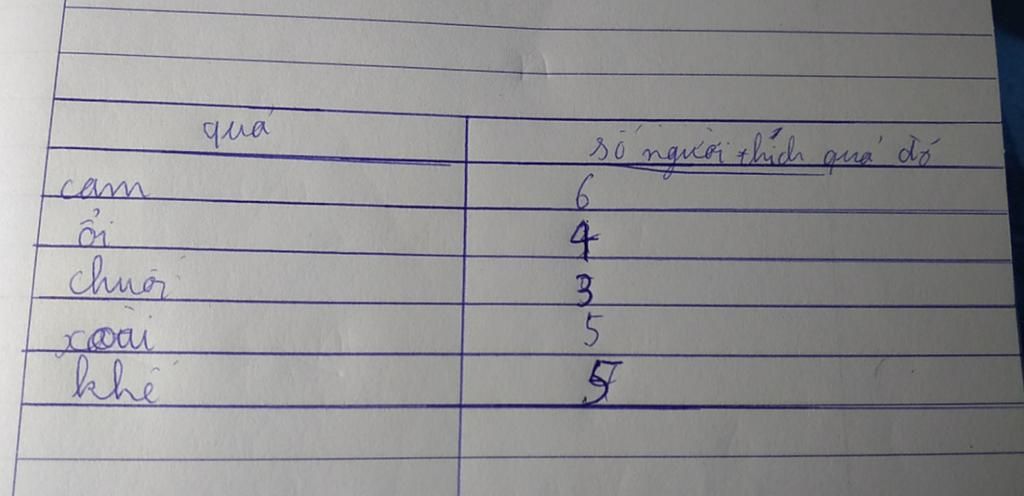 quả số người thích quả đó
cam 6
ổi 4
chuối 3
xoài 5
khế 5